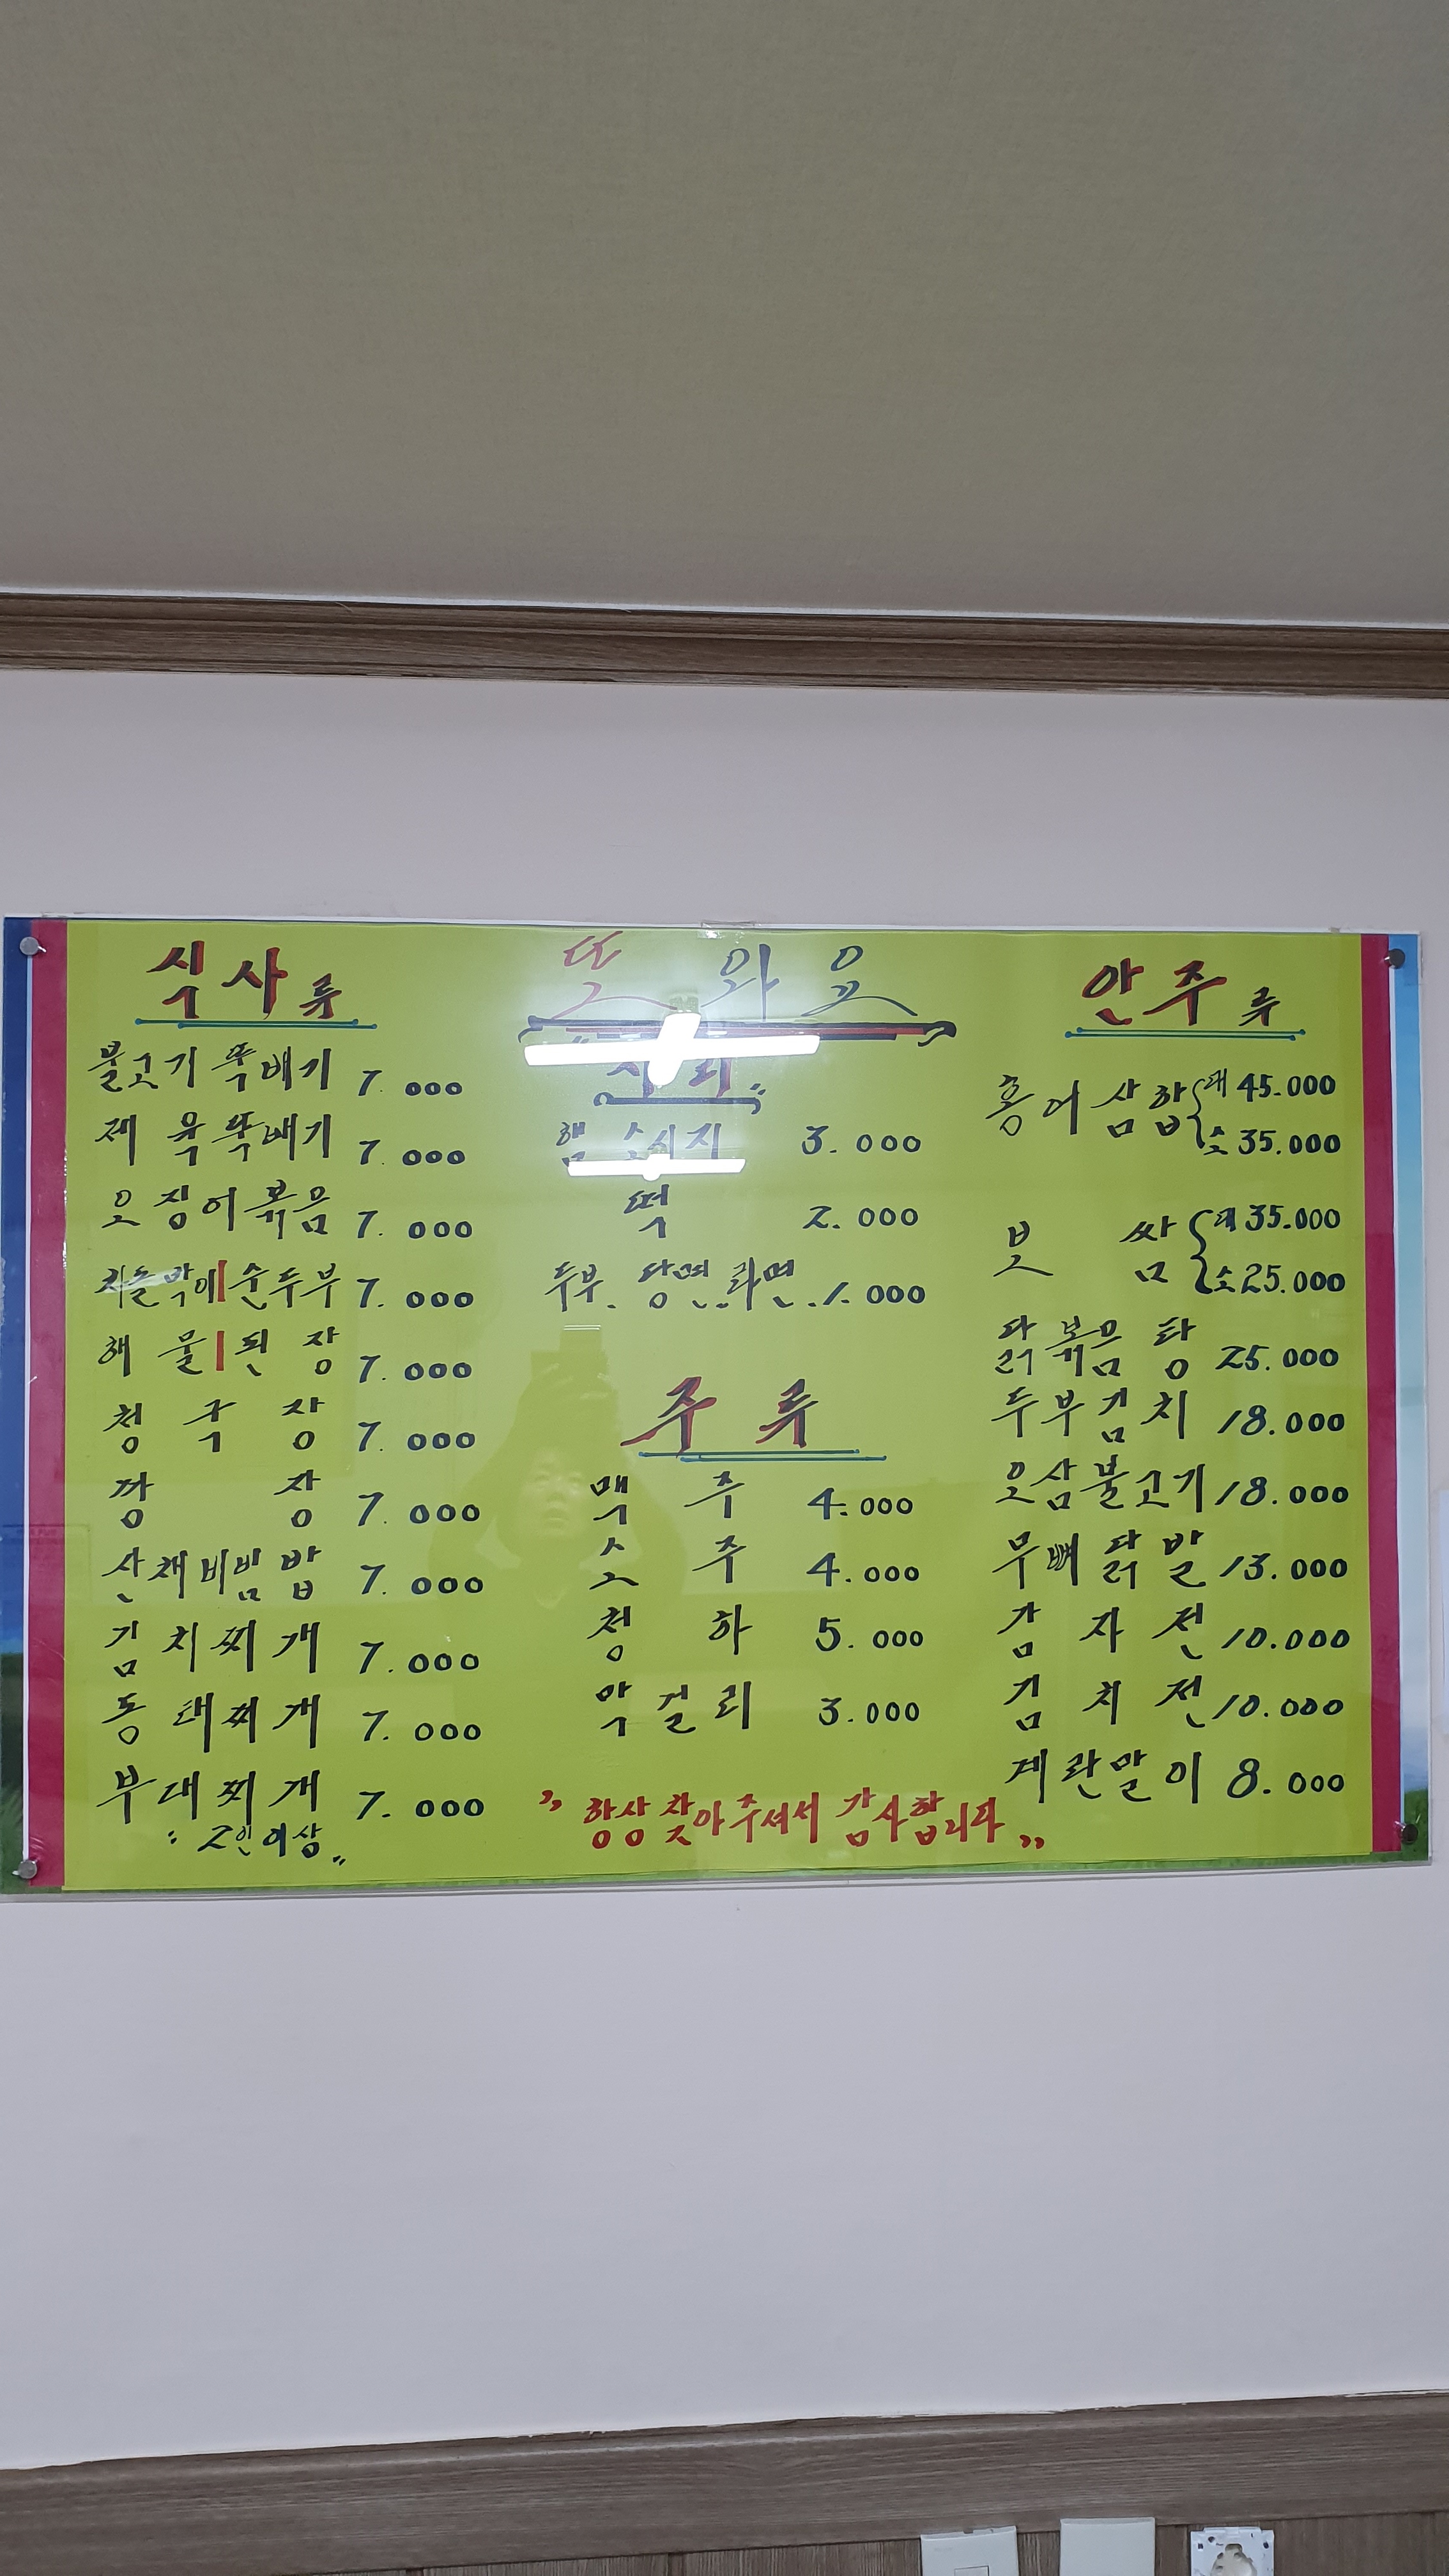 식사류
불고기 뚝배기 7.000
제육뚝배기 7.000
오징어볶음 7.000
차돌박이|순두부 7.000
해물|된장 7.000
청국장 7.000
깡장 7.000
산채비빔밥 7.000
김치찌개 7.000
동태찌개 7.000
부대찌개 7.000
"2인이상"
또와요
"사리"
햄 소시지 3.000
떡 2.000
두부. 당면. 라면. 1.000
주류
맥주 4.000
소주 4.000
청하 5.000
막걸리 3.000
"항상 찾아주셔서 감사합니다"
안주류
홍어삼합 대 45.000
소 35.000
보쌈 대 35.000
소 25.000
닭볶음탕 25.000
두부김치 18.000
오삼불고기 18.000
무뼈닭발 13.000
감자전 10.000
김치전 10.000
계란말이 8.000